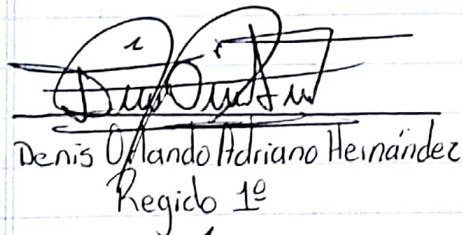 Denis Orlando Adriano Hernández
Regido 1º